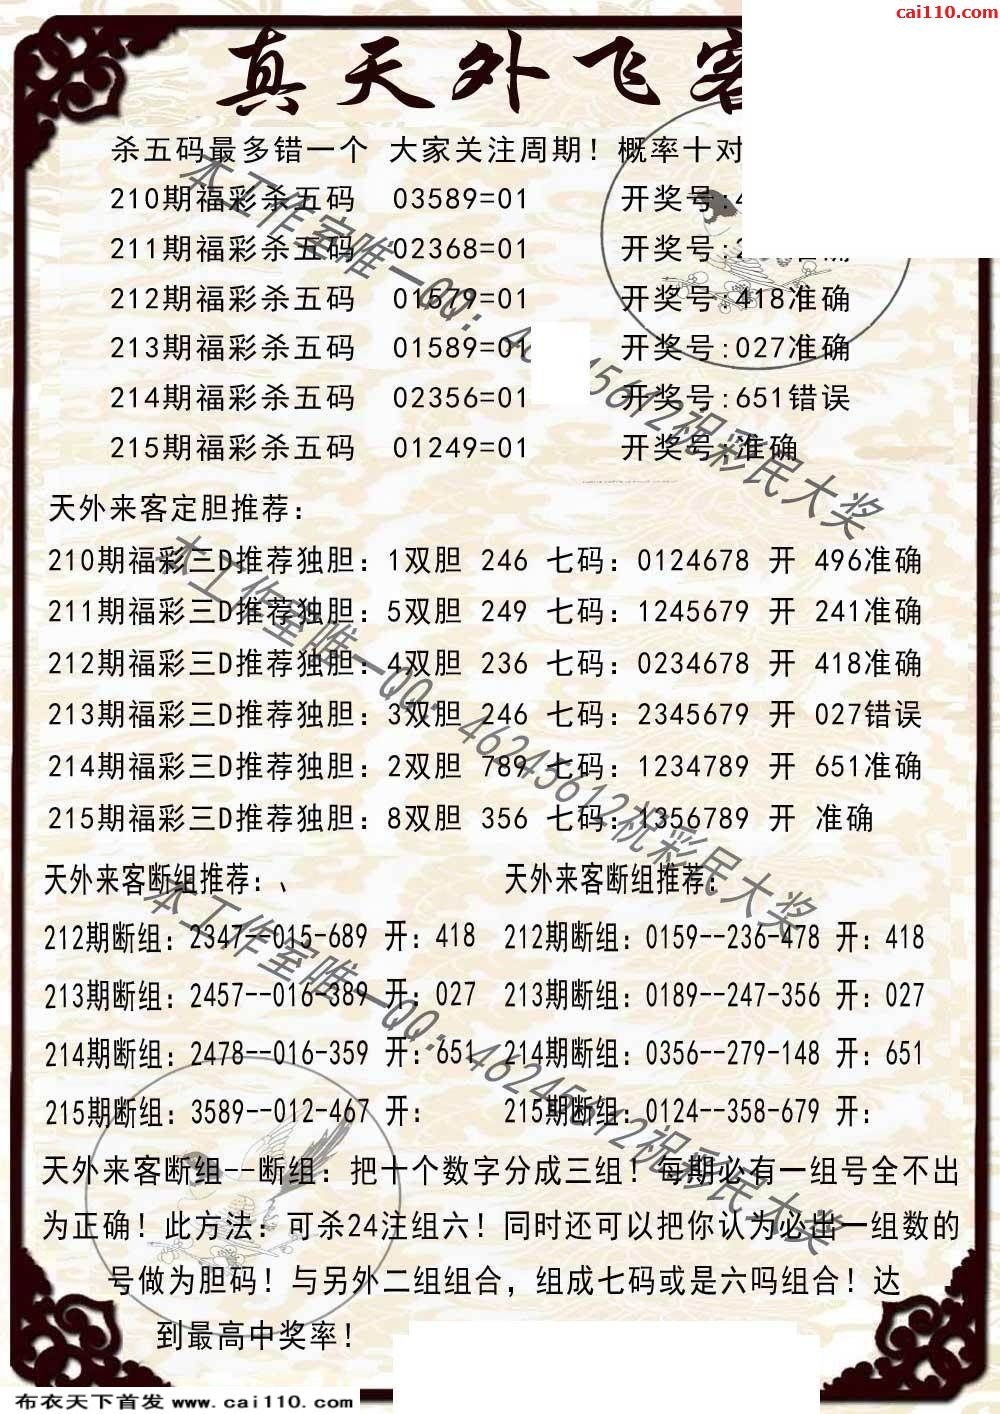 cai110.com
真天外飞客
杀五码最多错一个 大家关注周期！概率十对
210期福彩杀五码 03589=01 开奖号:4
211期福彩杀五码 02368=01 开奖号:2准确
212期福彩杀五码 01579=01 开奖号:418准确
213期福彩杀五码 01589=01 开奖号:027准确
214期福彩杀五码 02356=01 开奖号:651错误
215期福彩杀五码 01249=01 开奖号:准确
天外来客定胆推荐：
210期福彩三D推荐独胆：1双胆 246 七码：0124678 开 496准确
211期福彩三D推荐独胆：5双胆 249 七码：1245679 开 241准确
212期福彩三D推荐独胆：4双胆 236 七码：0234678 开 418准确
213期福彩三D推荐独胆：3双胆 246 七码：2345679 开 027错误
214期福彩三D推荐独胆：2双胆 789 七码：1234789 开 651准确
215期福彩三D推荐独胆：8双胆 356 七码：1356789 开 准确
天外来客断组推荐：、 天外来客断组推荐：
212期断组：2347--015-689 开：418 212期断组：0159--236-478 开：418
213期断组：2457--016-389 开：027 213期断组：0189--247-356 开：027
214期断组：2478--016-359 开：651 214期断组：0356--279-148 开：651
215期断组：3589--012-467 开： 215期断组：0124--358-679 开：
天外来客断组--断组：把十个数字分成三组！每期必有一组号全不出
为正确！此方法：可杀24注组六！同时还可以把你认为必出一组数的
号做为胆码！与另外二组组合，组成七码或是六吗组合！达
到最高中奖率！
本工作室唯一QQ：46245612祝彩民大奖
本工作室唯一QQ：46245612祝彩民大奖
本工作室唯一QQ：46245612祝彩民大奖
布衣天下首发 www.cai110.com